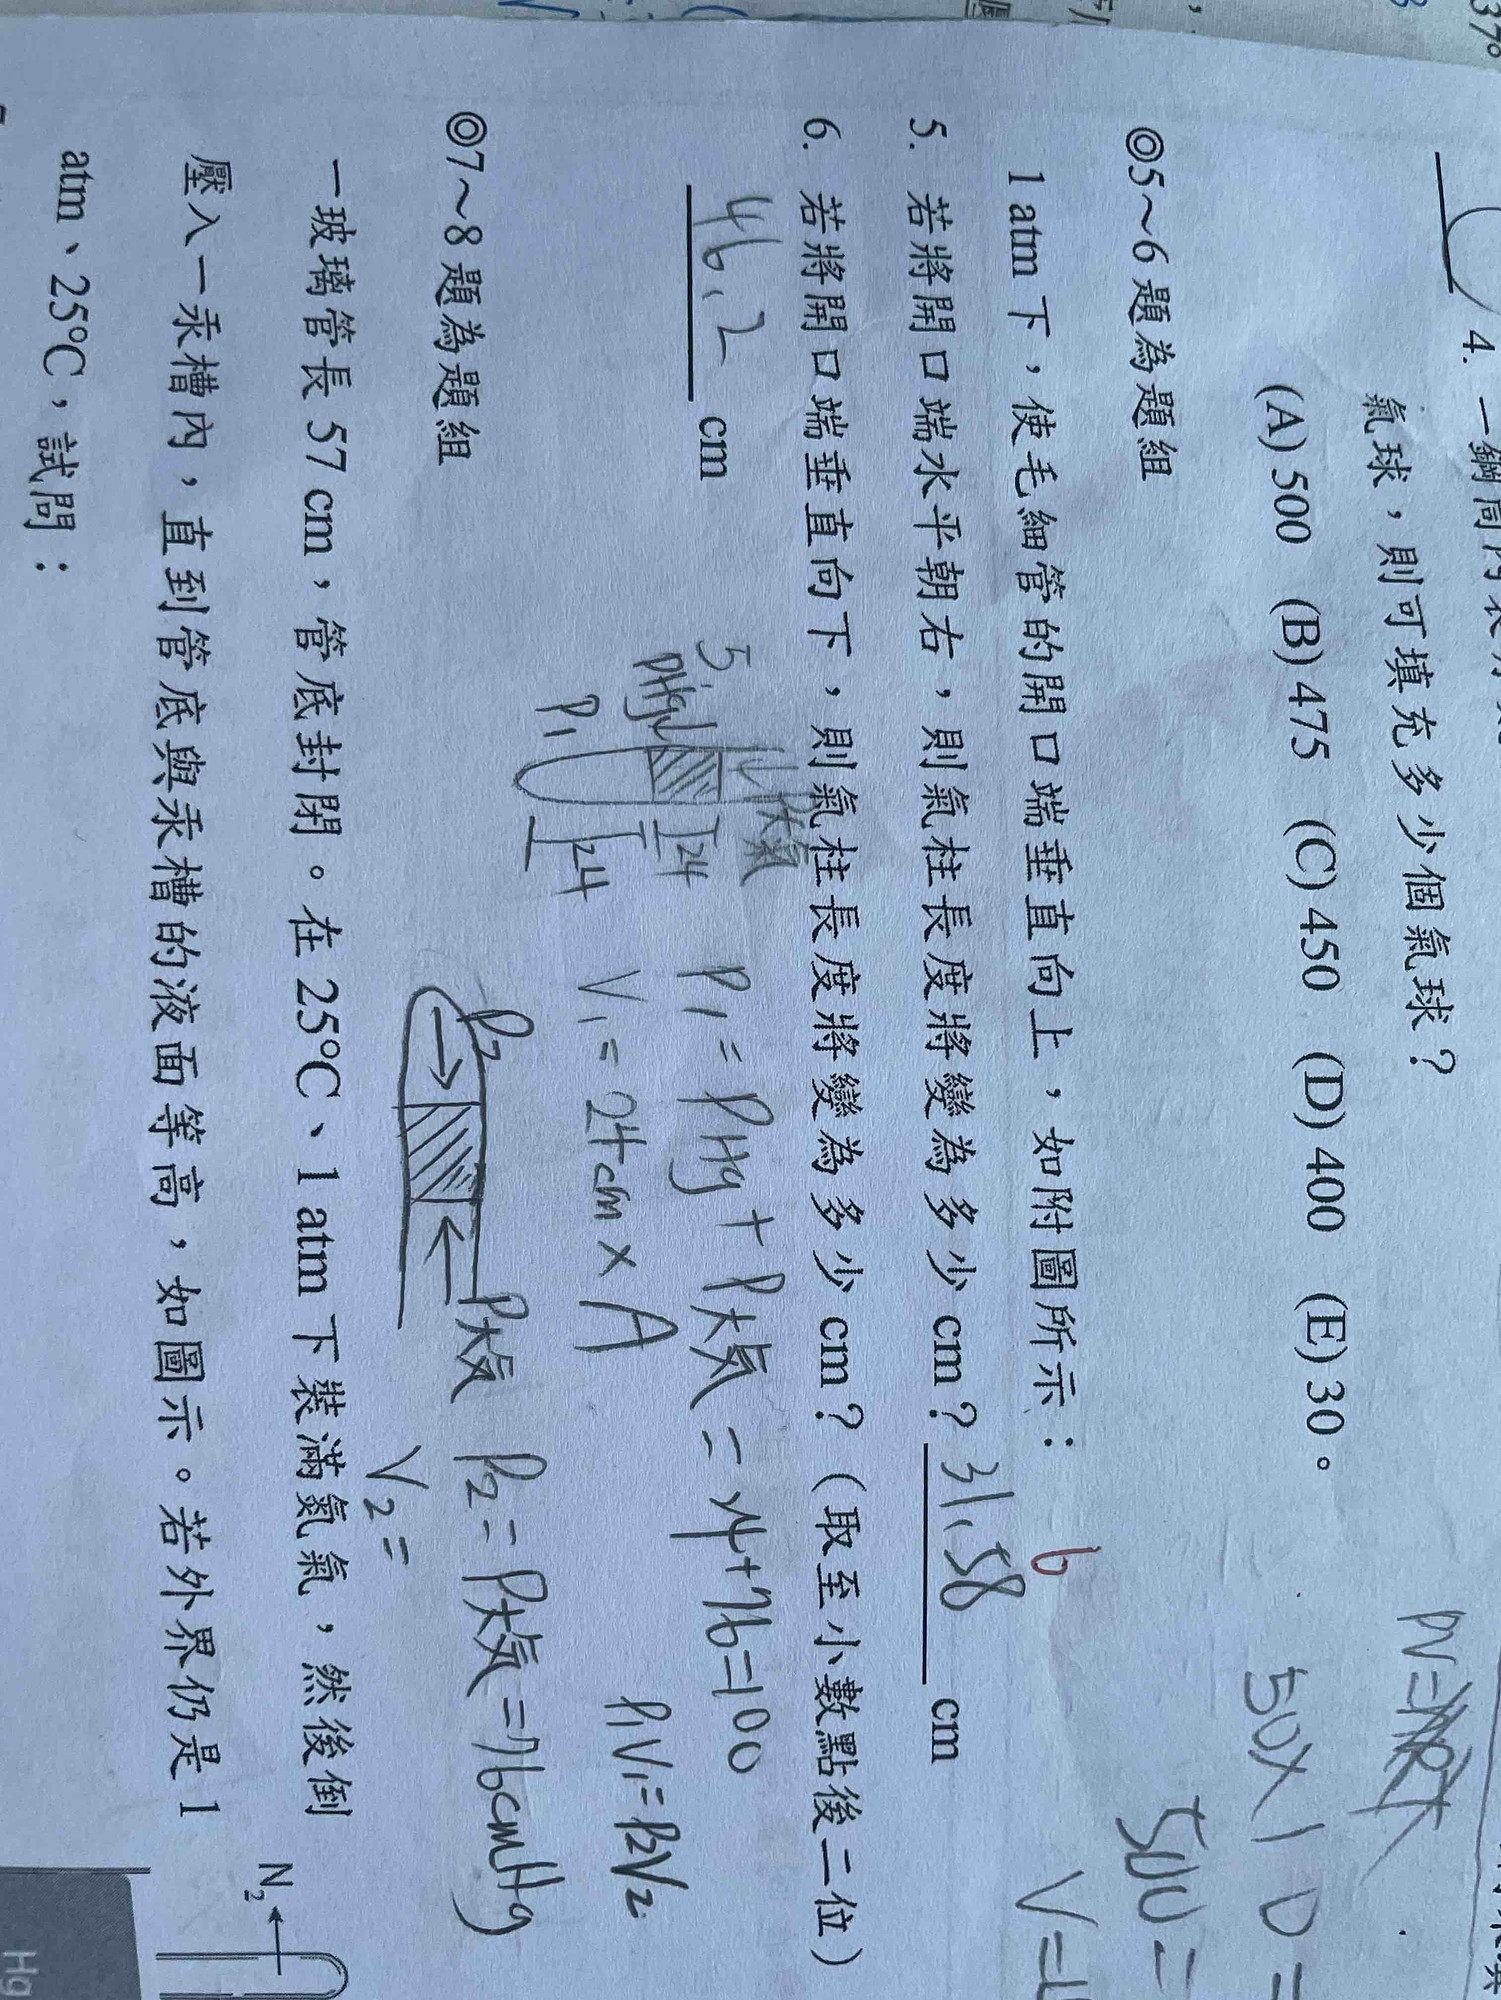 4. 一鋼筒內
氣球，則可填充多少個氣球？
(A) 500 (B) 475 (C) 450 (D) 400 (E) 30。
PV=
50×10=
500=
V=
◎5～6 題為題組
1 atm 下，使毛細管的開口端垂直向上，如附圖所示：
6
5. 若將開口端水平朝右，則氣柱長度將變為多少 cm？ 31.58 cm
6. 若將開口端垂直向下，則氣柱長度將變為多少 cm？（取至小數點後二位）
46.2 cm
5.
P大氣
PHg
24
24
P1
P1=PHg+P大気=24+76=100
V1=24cm×A
P1V1=P2V2
P2
P大気
P2=P大気=76cmHg
V2=
◎7～8 題為題組
一玻璃管長 57 cm，管底封閉。在 25°C、1 atm 下裝滿氮氣，然後倒
壓入一汞槽內，直到管底與汞槽的液面等高，如圖示。若外界仍是 1
atm、25°C，試問：
N2
Hg